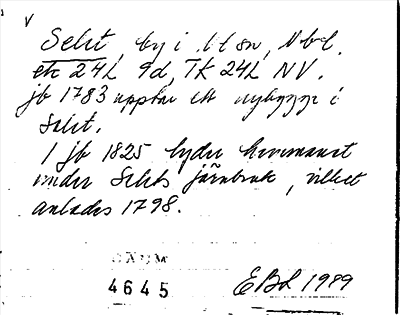 V
Selet, by i Ltsn, Nbl.
ek 24L 9d, TK 24L NV.
jb 1783 upptar ett nybygge i
Selet.
I jb 1825 lyder hemmanet
under Selets järnbruk, vilket
anlades 1798.
4645 EBL 1989